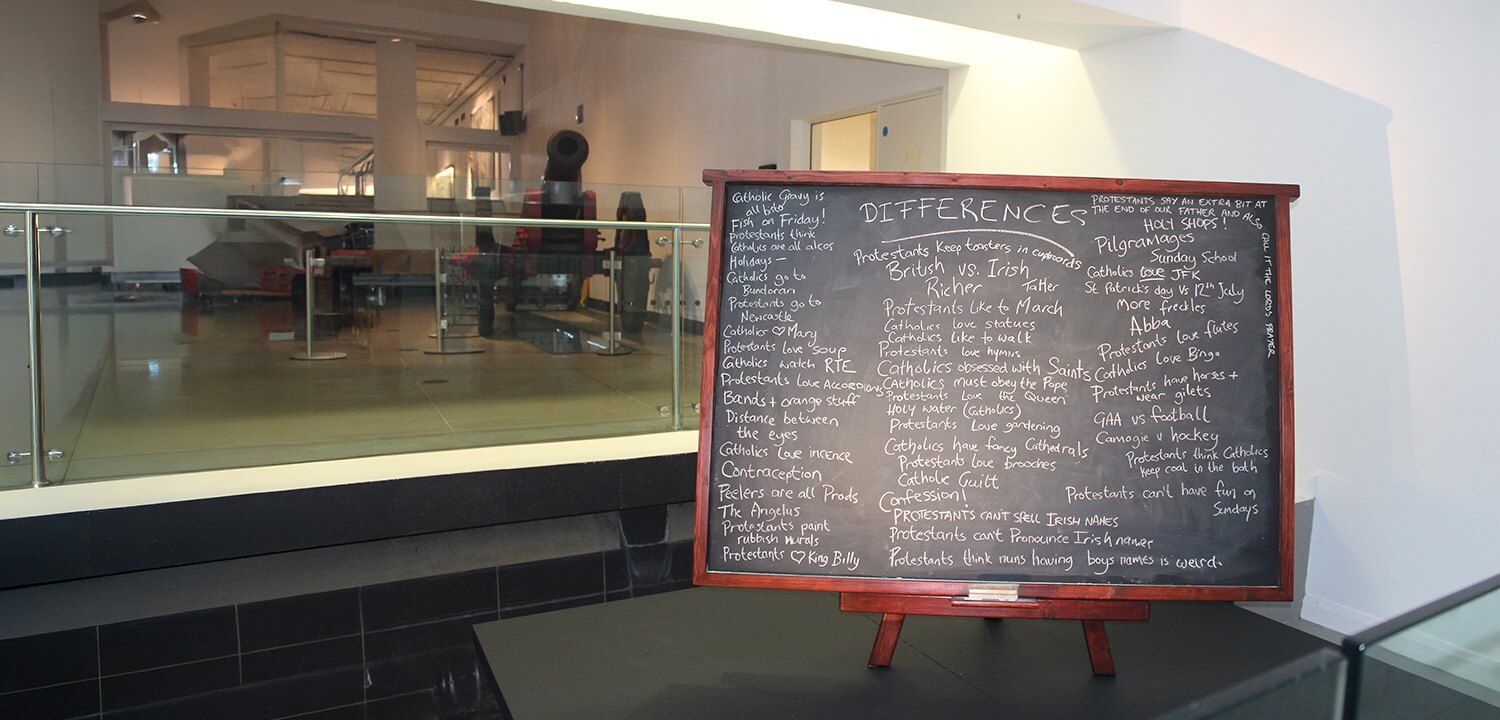 DIFFERENCES
Catholic Gravy is
all bisto
Fish on Friday!
Protestants think
Catholics are all alcos
Holidays –
Catholics go to
Bundoran
Protestants go to
Newcastle
Catholics ♡ Mary
Protestants love soup
Catholics watch RTE
Protestants Love Accordions
Bands + orange stuff
Distance between
the eyes
Catholics love incence
Contraception
Peelers are all Prods
The Angelus
Protestants paint
rubbish murals
Protestants ♡ King Billy
Protestants keep toasters in cupboards
British vs. Irish
Richer Taller
Protestants like to March
Catholics love statues
Catholics like to walk
Protestants love hymns
Catholics obsessed with Saints
Catholics must obey the Pope
Protestants Love the Queen
Holy water (Catholics)
Protestants Love gardening
Catholics have fancy Cathedrals
Protestants love brooches
Catholic Guilt
Confession!
PROTESTANTS CAN'T SPELL IRISH NAMES
Protestants can't Pronounce Irish names
Protestants think nuns having boys names is weird.
PROTESTANTS SAY AN EXTRA BIT AT
THE END OF OUR FATHER AND ALSO
CALL IT THE LORDS PRAYER
HOLY SHOPS!
Pilgramages
Sunday School
Catholics love JFK
St Patrick's day Vs 12th July
More freckles
Abba
Protestants love flutes
Catholics love Bingo
Protestants have horses +
wear gilets
GAA vs football
Camogie v hockey
Protestants think Catholics
keep coal in the bath
Protestants can't have fun on
Sundays